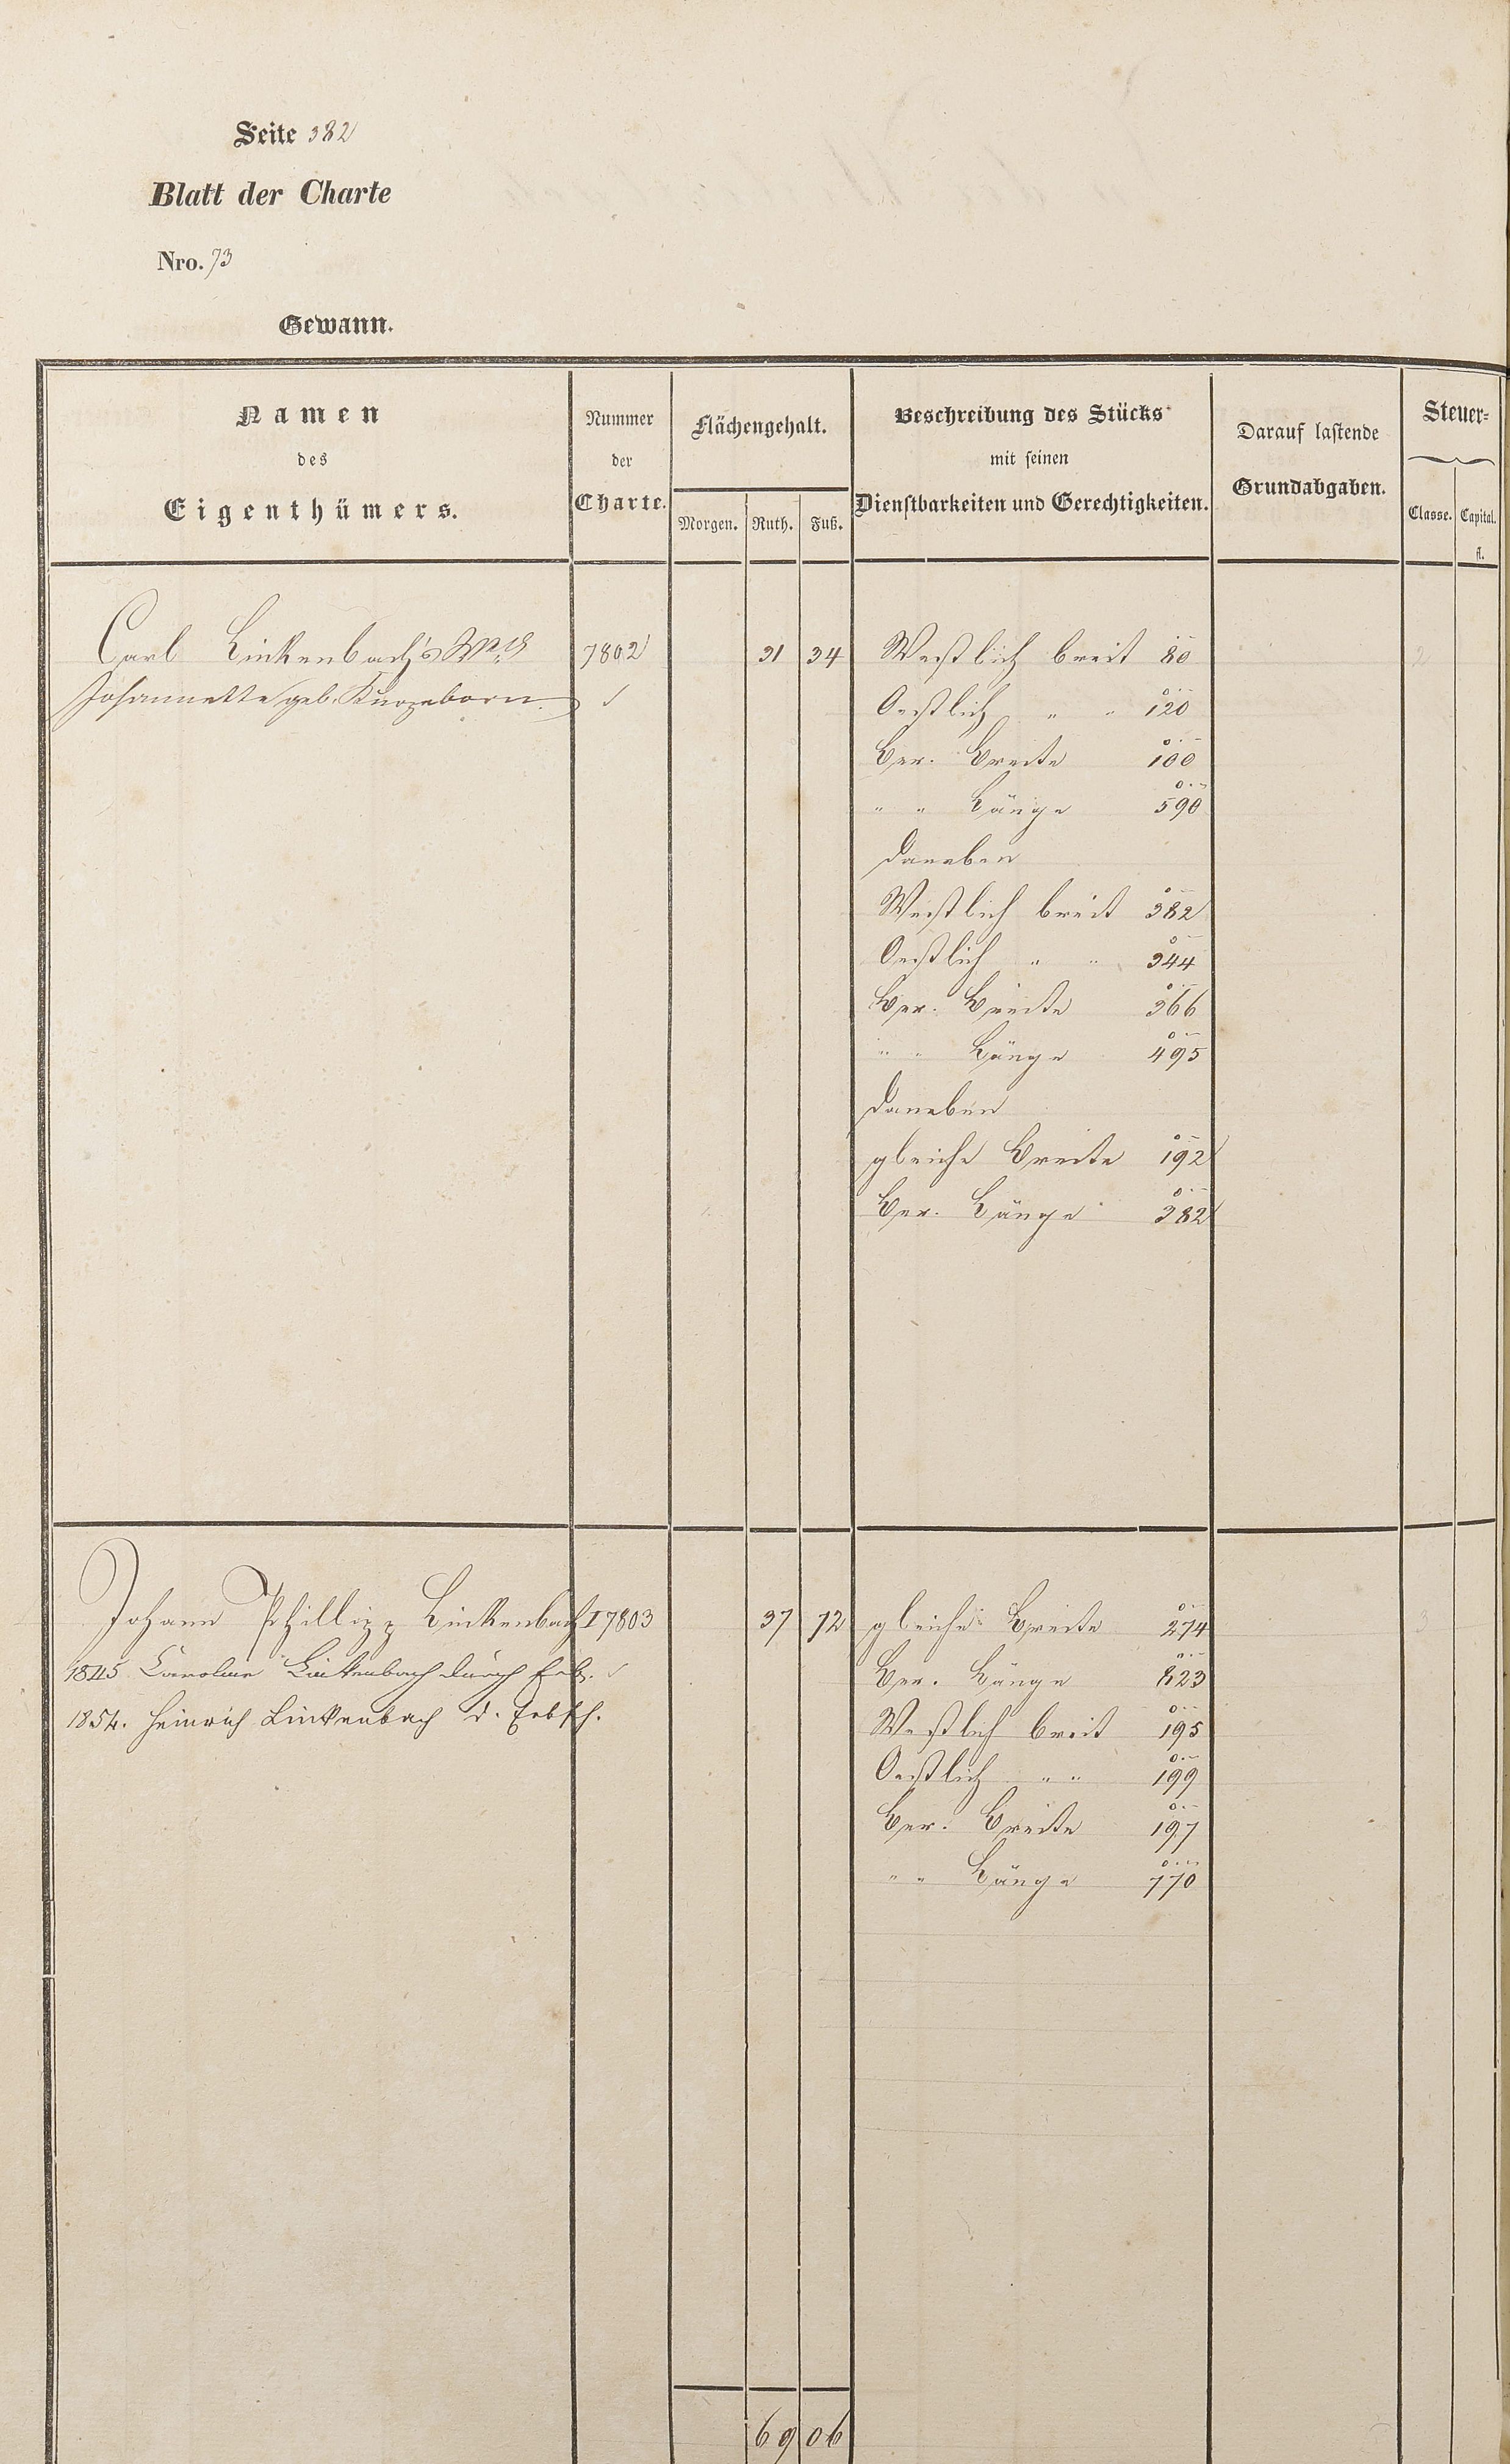 Seite 382
Blatt der Charte
Nro. 73
Gewann.
Namen
des
Eigenthümers.
Nummer
der
Charte.
Flächengehalt.
Morgen. Ruth. Fuß.
Beschreibung des Stücks
mit seinen
Dienstbarkeiten und Gerechtigkeiten.
Darauf lastende
Grundabgaben.
Steuer-
Classe. Capital.
fl.
Carl Linkenbach's Wwe 7802 31 34 Westlich breit 80
Johannette geb. Kurzeborn.
Oestlich " " 120
Ber. Breite 100
" " Länge 590
daneben
Westlich breit 382
Oestlich " " 344
Ber. Breite 366
" " Länge 495
daneben
gleiche Breite 192
Ber. Länge 382
Johann Phillipp Linkenbach I 7803 37 72 gleiche Breite 274
1845 Caroline Linkenbach durch Erb.
Ber. Länge 823
1854. Heinrich Linkenbach d. Erbsch.
Westlich breit 195
Oestlich " " 199
Ber. Breite 197
" " Länge 770
69 06